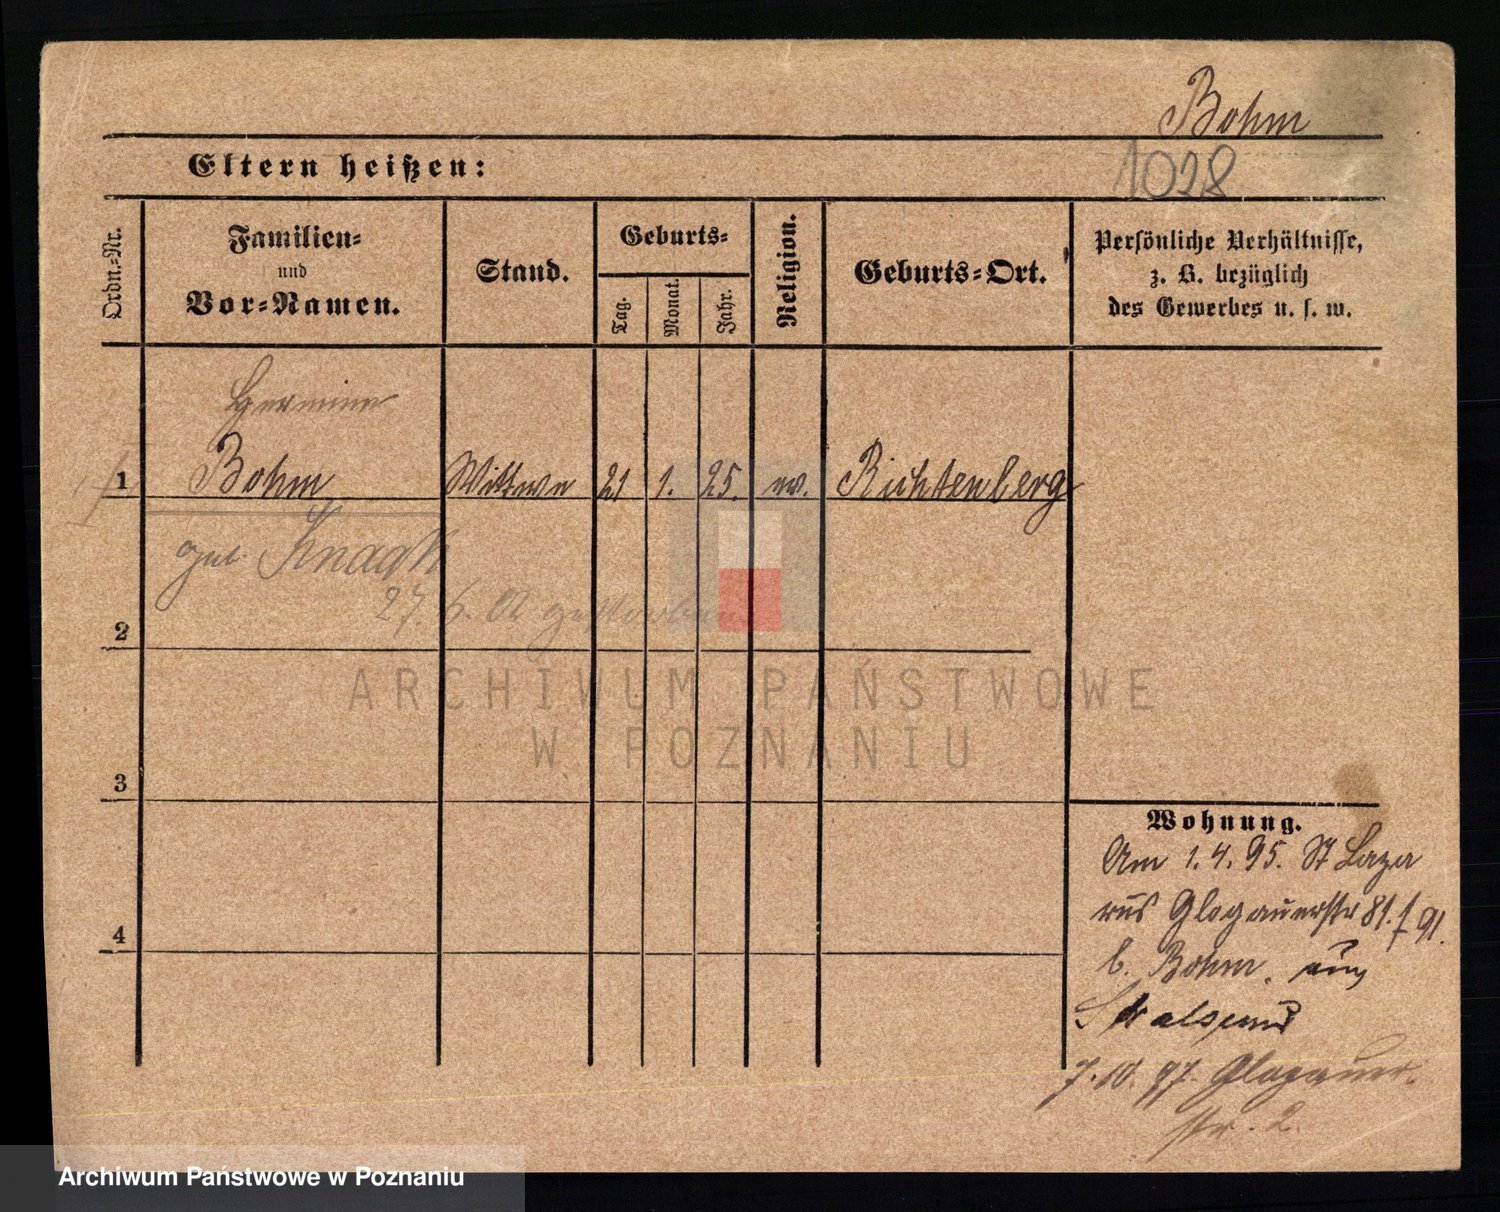 Bohm
Eltern heißen:
1028
Ordn.-Nr.
Familien-
und
Vor-Namen.
Stand.
Geburts-
Tag.
Monat.
Jahr.
Religion.
Geburts-Ort.
Persönliche Verhältnisse,
z. B. bezüglich
des Gewerbes u. s. w.
Hermine
1 Bohm Wittwe 21 1. 25. ev. Richtenberg
geb. Knaak
27. 6. gestorben
2
ARCHIWUM PAŃSTWOWE
W POZNANIU
3
4
Wohnung.
Am 1.4.95. St Laza
rus Glogauerstr 81. f 91.
b. Bohm. aus
Stralsund
7.10.97. Glogauer-
str. 2.
Archiwum Państwowe w Poznaniu